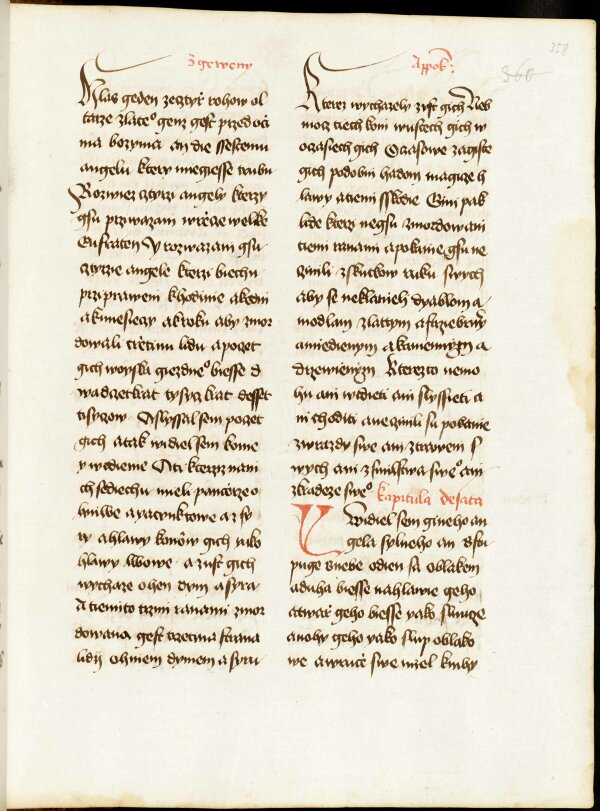 Zgeweny
Appok:
358
360
hlas geden zecztyr rohow ol
tarze zlateº genz gest przed oczi
ma bozyma an die ssestemu
angelu ktery megiesse trubu
Rozwiez cztyrzi angely kterzy
gsu przwazani wrzieczie welike
Eufraten Y rozwazani gsu
cztyrzie angele kterzi biechu
przprawem khodinie akedni
akmiesiecy akroku aby zmor
dowali trzetinu lidu apoczet
gich woyska giezdneº biesse d
wadczetkrat tysyczkrat desset
tisyczow Aslyssal sem poczet
gich atak widiel sem konie
y wwidienie Ati kterzyz nani
ch sediechu mieli pancierzeo
hniwe ayacynktowe asy
ry ahlawy konow gich iako
hlawy lwowe azust gich
wychazie ohen dym asyra
Atiemito trzmi ranami zmor
dowana gest trzetina strana
lidij ohniem dymem asyru
kterez wychazely zust gich Neb
mocz tiech koni wustech gich w
oczasiech gich Oczasowe zagiste
gich podobni hadom magicze h
lawy atiemi sskodie Gini pak
lide kterzi negsu zmordowani
tiemi ranami apokanie gsu ne
czinili zskutkow ruku swych
aby se neklanieli dyablom a
modlam zlattym astrziebrnym
amiedienym akamennym a
drzewienym kterezto nemo
hu ani widieti ani slyssieti a
ni choditi aneczinili su pokanie
zwrazdy swe ani ztrawem s
wych ani zsmilstwa sweº ani
zkradeze sweº kapitula desata
Y widiel sem gineho an
gela sylneho an sstu
puge snebe odien sa oblakem
aduha biesse nahlawie geho
atwarz geho biesse yako slunce
anohy geho yako slup oblako
we awrucie swe miel knihy